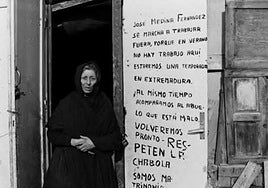 JOSE MEDINA FERNANDEZ
SE MARCHA A TRABAJAR
FUERA, PORQUE EN VERANO
NO HAY TRABAJO AQUI
ESTAREMOS UNA TEMPORADA
EN EXTREMADURA.
¡AL MISMO TIEMPO
ACOMPAÑAMOS AL
LO QUE ESTA MALO
VOLVEREMOS
PRONTO - RES-
PETEN LA
CHABOLA
SOMOS MA-
TRIMONIO